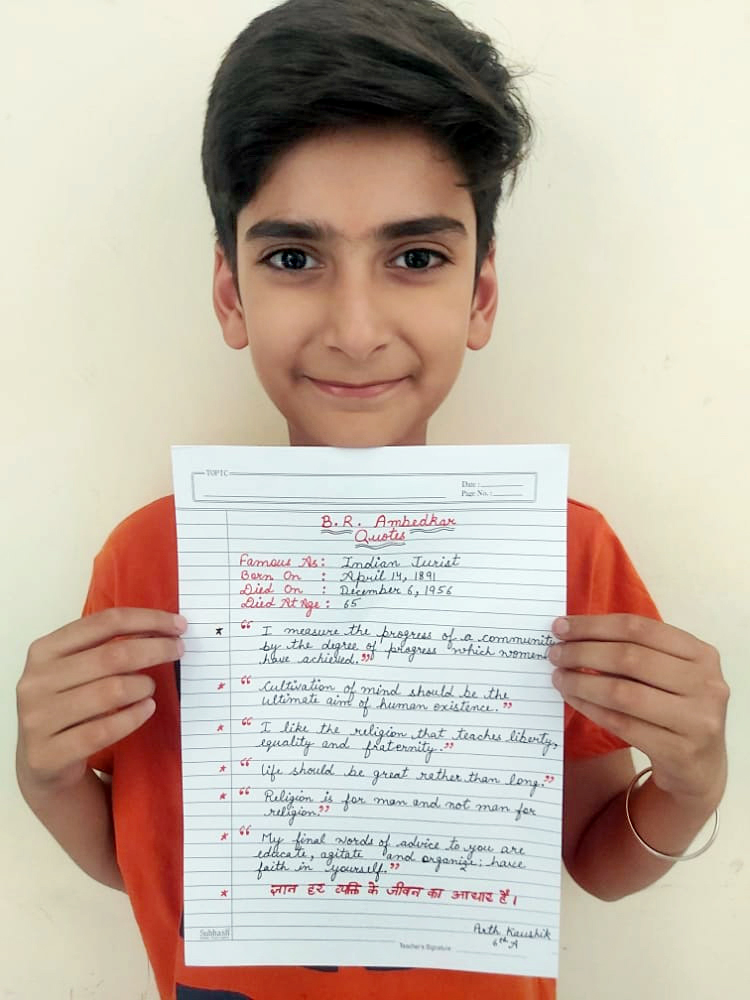 TOPIC
Date :
Page No. :
B. R. Ambedkar
Quotes
Famous As : Indian Jurist
Born On : April 14, 1891
Died On : December 6, 1956
Died At Age : 65
* "I measure the progress of a community
by the degree of progress which women
have achieved."
* "Cultivation of mind should be the
ultimate aim of human existence."
* "I like the religion that teaches liberty,
equality and fraternity."
* "Life should be great rather than long."
* "Religion is for man and not man for
religion."
* "My final words of advice to you are
educate, agitate and organize; have
faith in yourself."
* ज्ञान हर व्यक्ति के जीवन का आधार है।
Parth Kaushik
6th A
Subhash
Teacher's Signature